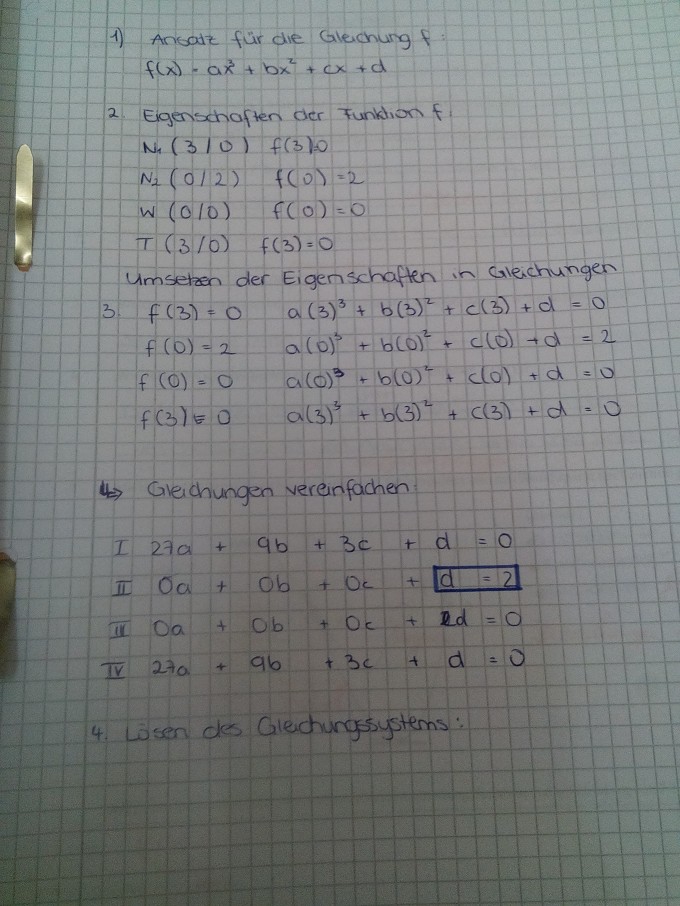 1) Ansatz für die Gleichung f:
f(x) = ax³ + bx² + cx + d
2. Eigenschaften der Funktion f:
N₁ (3/0) f(3)=0
N₂ (0/2) f(0) = 2
W (0/0) f(0) = 0
T (3/0) f(3) = 0
Umsetzen der Eigenschaften in Gleichungen
3. f(3) = 0 a(3)³ + b(3)² + c(3) + d = 0
f(0) = 2 a(0)³ + b(0)² + c(0) + d = 2
f(0) = 0 a(0)³ + b(0)² + c(0) + d = 0
f(3) = 0 a(3)³ + b(3)² + c(3) + d = 0
↳ Gleichungen vereinfachen:
I 27a + 9b + 3c + d = 0
II 0a + 0b + 0c + d = 2
III 0a + 0b + 0c + d = 0
IV 27a + 9b + 3c + d = 0
4. Lösen des Gleichungssystems: